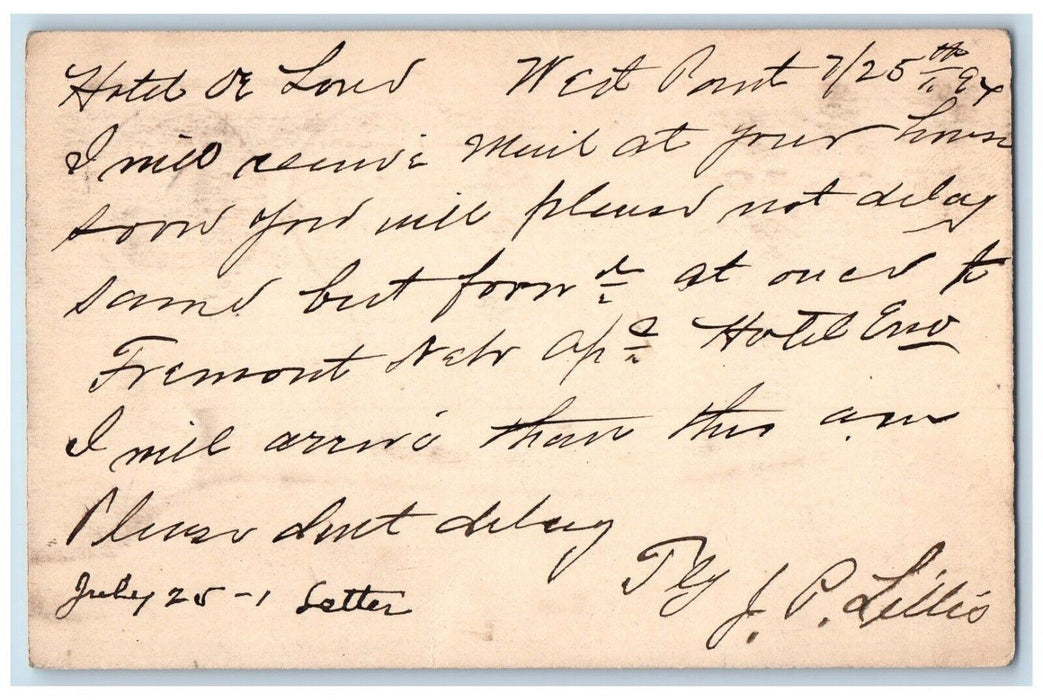 Hotel De Loud West Point 7/25th 94
I will receive Mail at your house
soon you will please not delay
same but forwd at once to
Fremont Nebr Hotel Eno
I will arrive than this am
Please dont delay
July 25 - 1 Letter Try J. P. Lillis